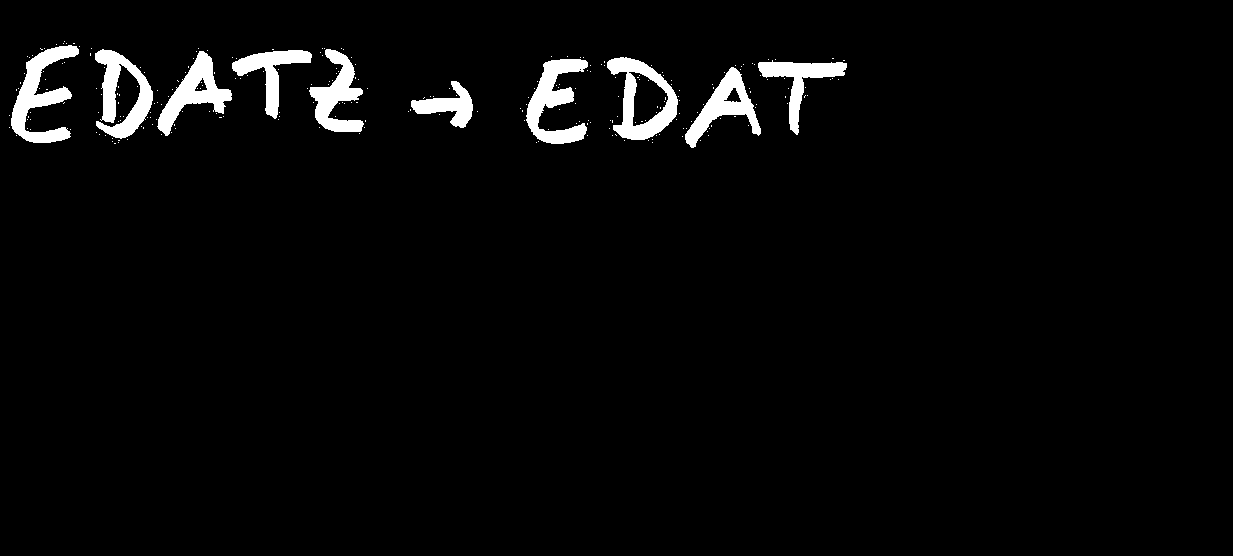 EDATZ → EDAT